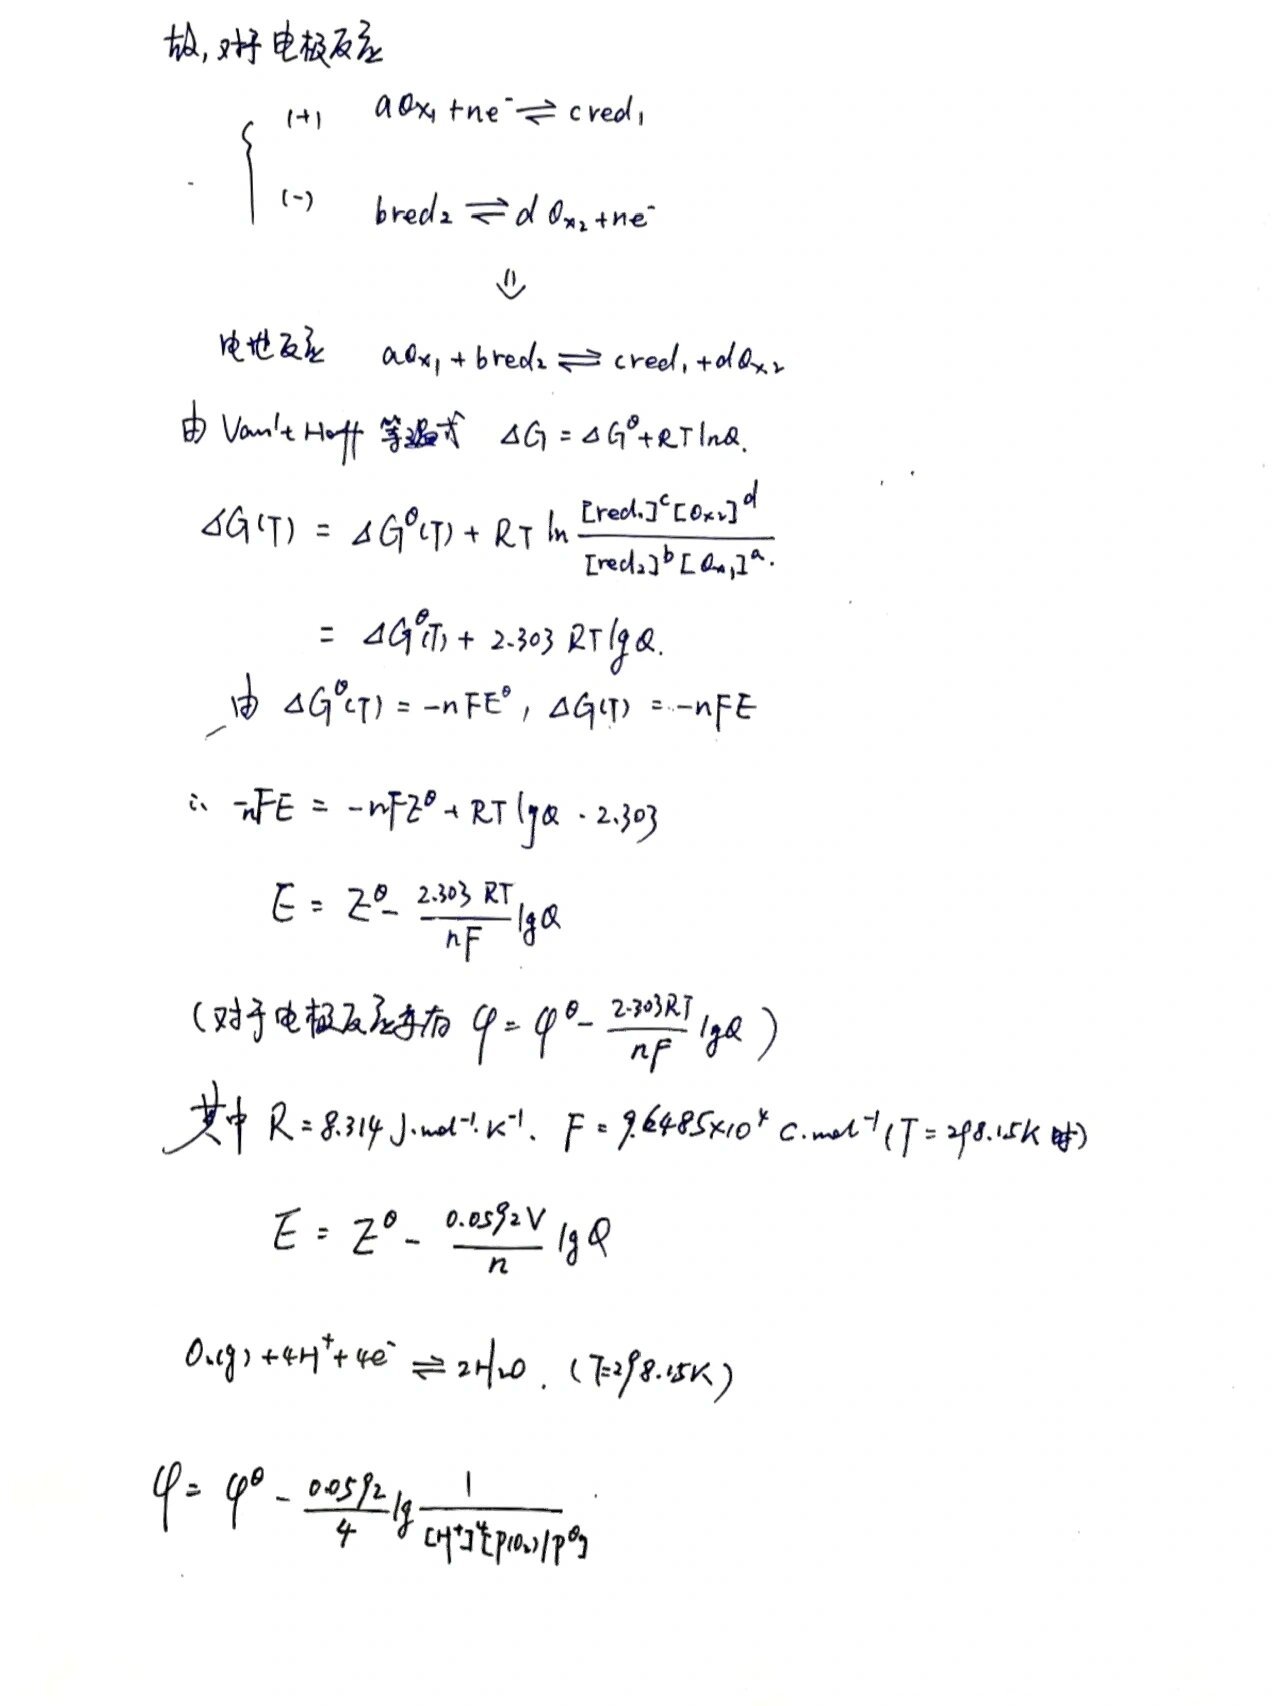 故,对于电极反应
(+) aOx₁ + ne⁻ ⇌ cred₁
(-) bred₂ ⇌ dOx₂ + ne⁻
⇓
电池反应 aOx₁ + bred₂ ⇌ cred₁ + dOx₂
由 Van't Hoff 等温式 ΔG = ΔG^θ + RTlnQ.
ΔG(T) = ΔG^θ(T) + RT ln [red₁]^c[Ox₂]^d / [red₂]^b[Ox₁]^a.
= ΔG^θ(T) + 2.303 RTlgQ.
由 ΔG^θ(T) = -nFE^θ, ΔG(T) = -nFE
∴ -nFE = -nFE^θ + RTlgQ · 2.303
E = E^θ - 2.303 RT / nF lgQ
(对于电极反应亦有 φ = φ^θ - 2.303RT / nF lgQ)
其中 R = 8.314 J·mol⁻¹·K⁻¹. F = 9.6485×10⁴ C·mol⁻¹ (T = 298.15K 时)
E = E^θ - 0.0592V / n lgQ
O₂(g) + 4H⁺ + 4e⁻ ⇌ 2H₂O. (T=298.15K)
φ = φ^θ - 0.0592 / 4 lg 1 / [H⁺]⁴[P(O₂)/P^θ]